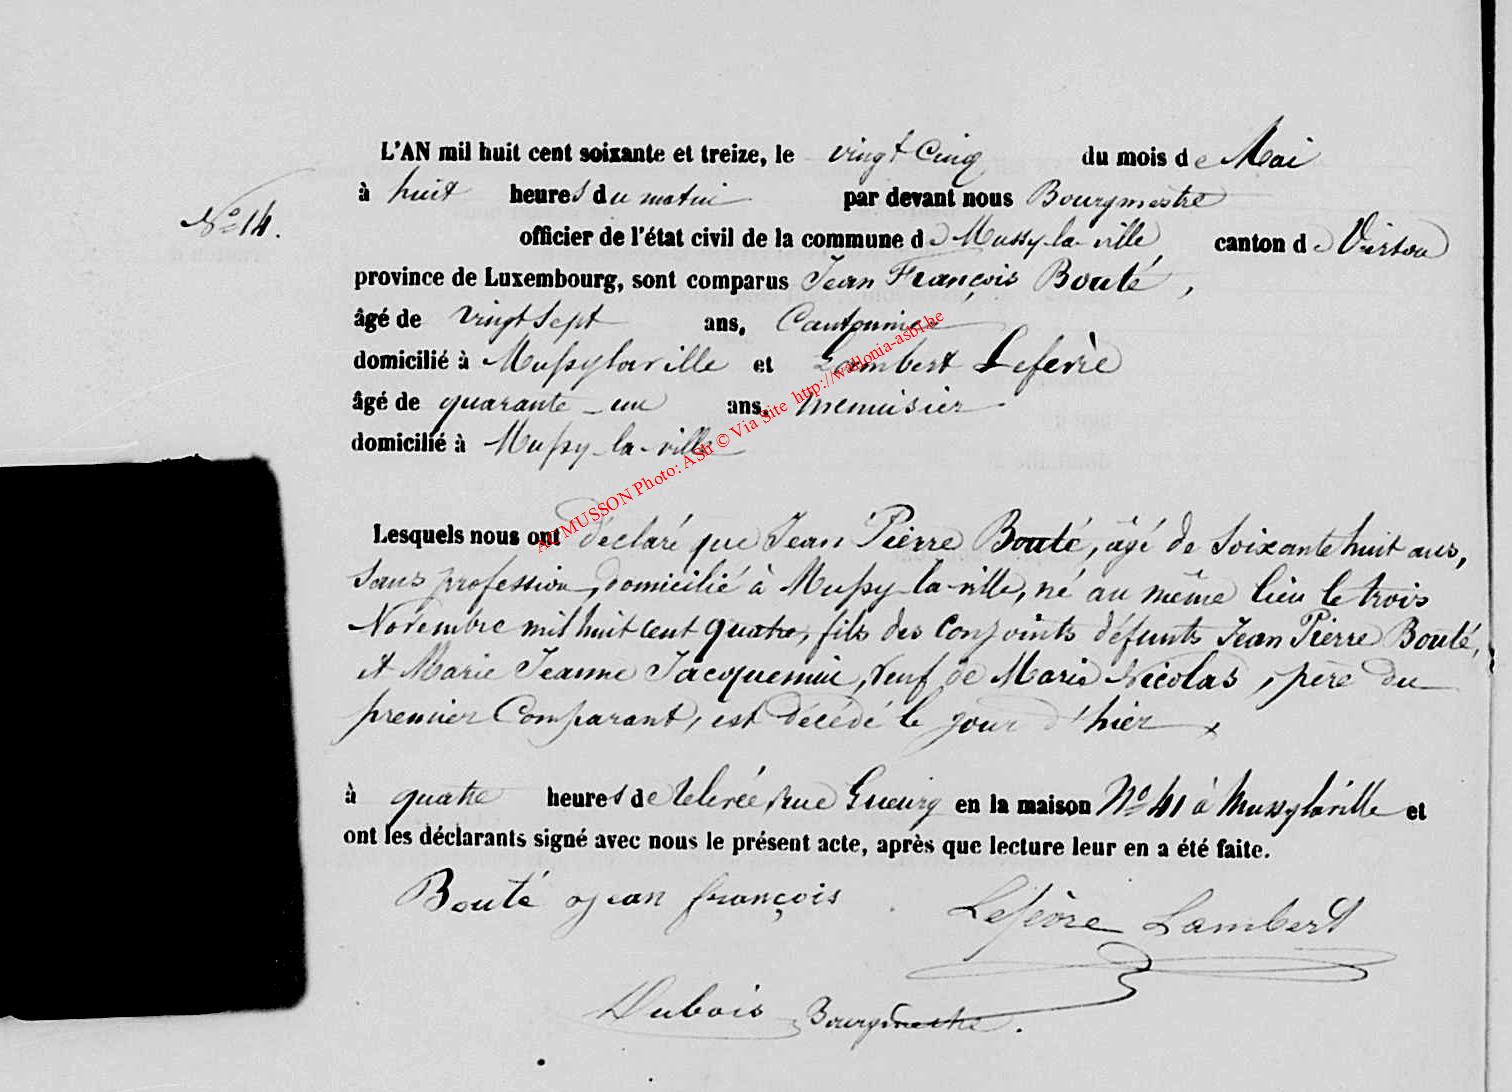 L'AN mil huit cent soixante et treize, le vingt Cinq du mois de Mai
à huit heures du matin par devant nous Bourgmestre
No 14.
officier de l'état civil de la commune de Mussy-la-ville canton de Virton
province de Luxembourg, sont comparus Jean François Bouté,
âgé de vingt Sept ans, Cantonnier
domicilié à Mussylaville et Lambert Lefevre
âgé de quarante-un ans, menuisier
domicilié à Mussy-la-ville
AC MUSSON Photo: ASli © Via Site http://wallonia-asbl.be
Lesquels nous ont déclaré que Jean Pierre Bouté, âgé de Soixante huit ans,
Sans profession, domicilié à Mussy-la-ville, né au même lieu le trois
Novembre mil huit cent quatre, fils des Conjoints défunts Jean Pierre Bouté,
et Marie Jeanne Jacquemin, veuf de Marie Nicolas, père du
premier Comparant, est décédé le jour d'hier
à quatre heures de relevée, rue Gueurg en la maison No 41 à Mussylaville et
ont les déclarants signé avec nous le présent acte, après que lecture leur en a été faite.
Bouté Jean françois Lefèvre Lambert
Dubois Bourgmestre.